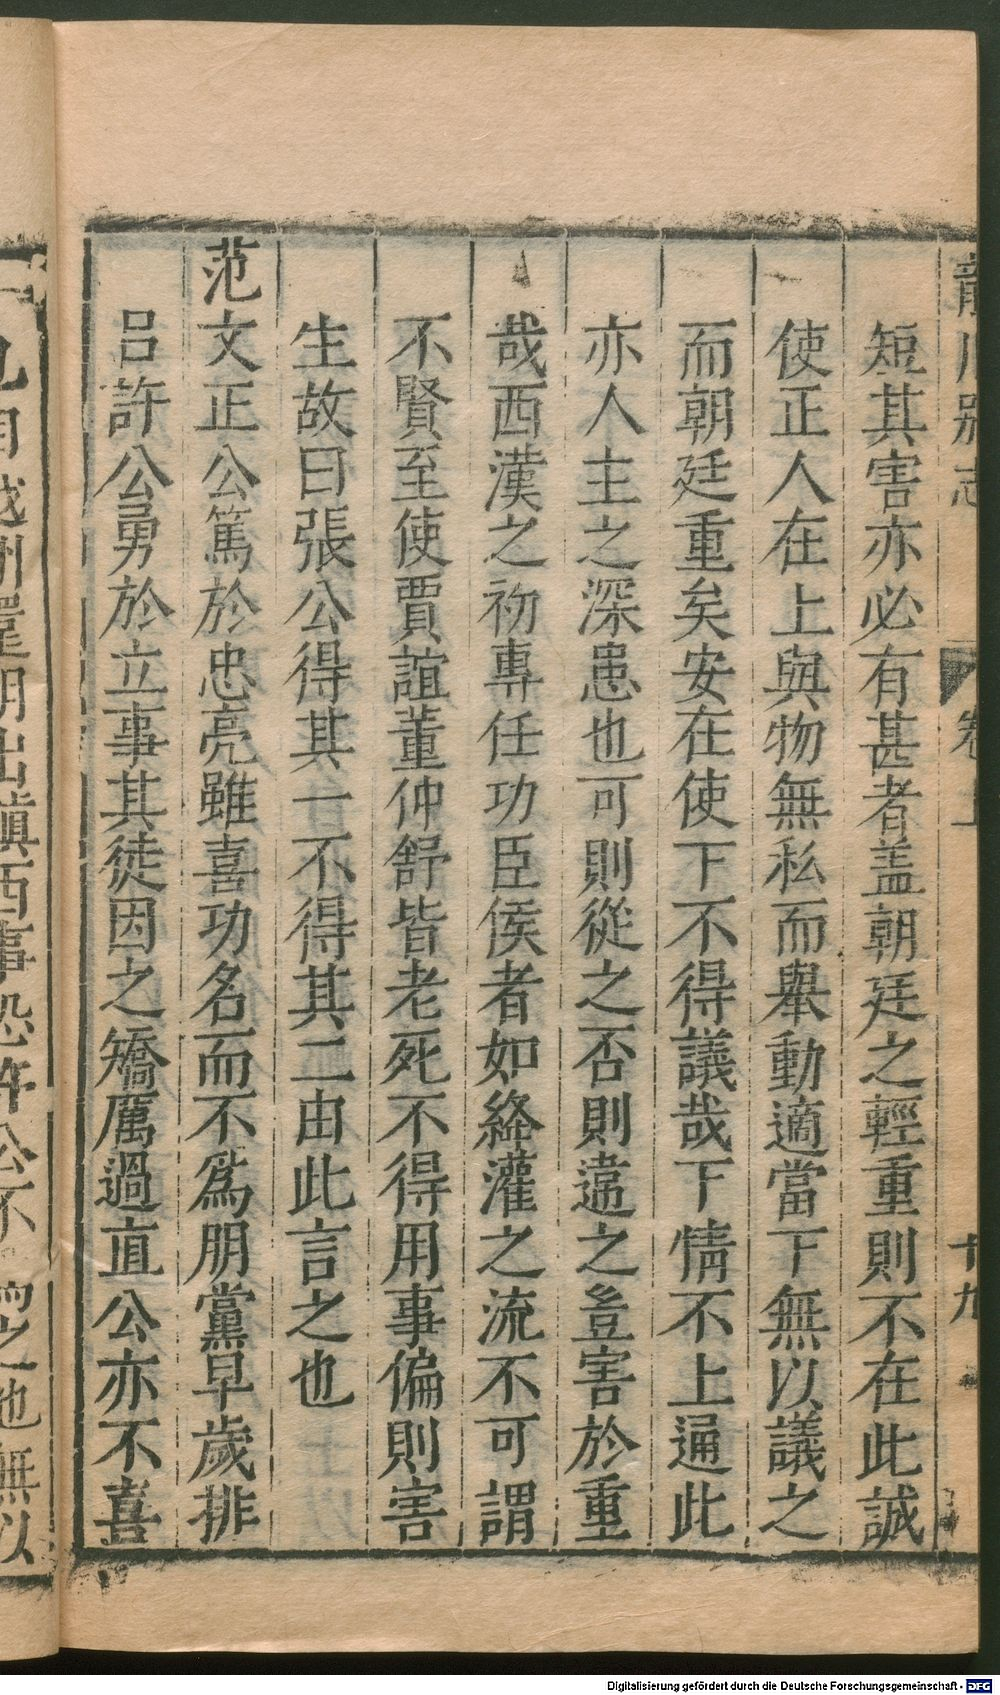 龍川别志 卷上 十九
短其害亦必有甚者盖朝廷之輕重則不在此誠
使正人在上與物無私而舉動適當下無以議之
而朝廷重矣安在使下不得議哉下情不上通此
亦人主之深患也可則從之否則違之豈害於重
哉西漢之初專任功臣侯者如絳灌之流不可謂
不賢至使賈誼董仲舒皆老死不得用事偏則害
生故曰張公得其一不得其二由此言之也
范文正公篤於忠亮雖喜功名而不爲朋黨早歲排
吕許公勇於立事其徒因之矯厲過直公亦不喜
自越州還朝出鎮西事恐許公不爲之地無以
Digitalisierung gefördert durch die Deutsche Forschungsgemeinschaft - DFG